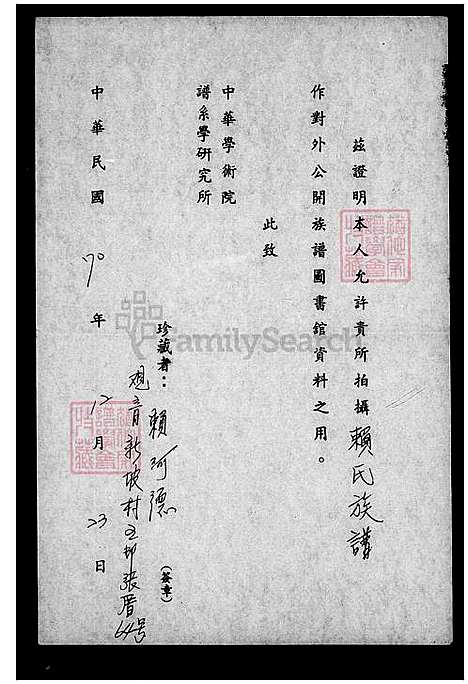 茲證明本人允許貴所拍攝賴氏族譜
作對外公開族譜圖書館資料之用。
此致
中華學術院
譜系學研究所
珍藏者：賴阿德
(簽章)
观音新坡村 邻張厝64号
中華民國70年12月23日
FamilySearch